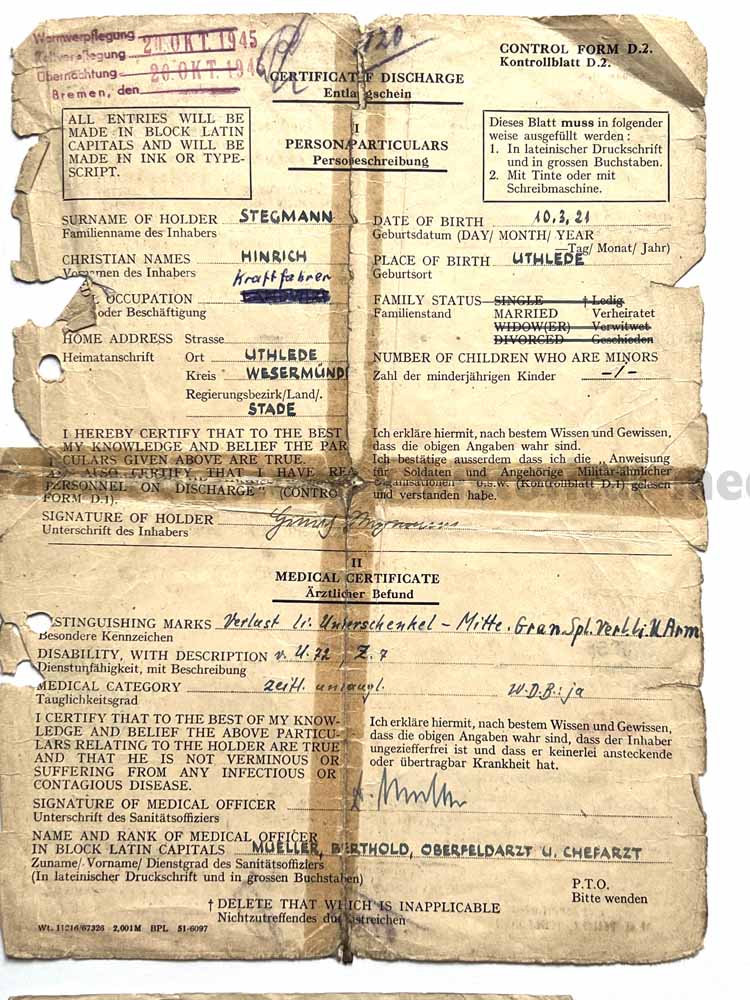 Warmverpflegung
Kaltverpflegung 20.OKT.1945
Übernachtung 20.OKT.194
Bremen, den
120
CONTROL FORM D.2.
Kontrollblatt D.2.
CERTIFICATE OF DISCHARGE
Entlassungschein
ALL ENTRIES WILL BE
MADE IN BLOCK LATIN
CAPITALS AND WILL BE
MADE IN INK OR TYPE-
SCRIPT.
I
PERSONAL PARTICULARS
Personalbeschreibung
Dieses Blatt muss in folgender
weise ausgefüllt werden:
1. In lateinischer Druckschrift
und in grossen Buchstaben.
2. Mit Tinte oder mit
Schreibmaschine.
SURNAME OF HOLDER STEGMANN
Familienname des Inhabers
DATE OF BIRTH 10.3.21
Geburtsdatum (DAY/ MONTH/ YEAR
—Tag/ Monat/ Jahr)
CHRISTIAN NAMES HINRICH
Vornamen des Inhabers
PLACE OF BIRTH UTHLEDE
Geburtsort
Kraftfahrer
OCCUPATION
oder Beschäftigung
FAMILY STATUS— SINGLE † Ledig
Familienstand MARRIED Verheiratet
WIDOW(ER) Verwitwet
DIVORCED Geschieden
HOME ADDRESS Strasse
Heimatanschrift Ort UTHLEDE
Kreis WESERMÜND
Regierungsbezirk/Land/.
STADE
NUMBER OF CHILDREN WHO ARE MINORS
Zahl der minderjährigen Kinder -/-
I HEREBY CERTIFY THAT TO THE BEST
MY KNOWLEDGE AND BELIEF THE PAR
CULARS GIVEN ABOVE ARE TRUE.
ALSO CERTIFY THAT I HAVE REA
PERSONNEL ON DISCHARGE" (CONTRO
FORM D.1).
Ich erkläre hiermit, nach bestem Wissen und Gewissen,
dass die obigen Angaben wahr sind.
Ich bestätige ausserdem dass ich die „Anweisung
für Soldaten und Angehörige Militär-ähnlicher
Organisationen" u.s.w. (Kontrollblatt D.1) gelesen
und verstanden habe.
SIGNATURE OF HOLDER
Unterschrift des Inhabers
II
MEDICAL CERTIFICATE
Ärztlicher Befund
DISTINGUISHING MARKS Verlust li. Unterschenkel - Mitte. Gran.Spl.Verl.li.U.Arm
Besondere Kennzeichen
DISABILITY, WITH DESCRIPTION v. U. 22, Z. 7
Dienstunfähigkeit, mit Beschreibung
MEDICAL CATEGORY zeitl. untaugl. W.D.B: ja
Tauglichkeitsgrad
I CERTIFY THAT TO THE BEST OF MY KNOW-
LEDGE AND BELIEF THE ABOVE PARTICU-
LARS RELATING TO THE HOLDER ARE TRUE
AND THAT HE IS NOT VERMINOUS OR
SUFFERING FROM ANY INFECTIOUS OR
CONTAGIOUS DISEASE.
Ich erkläre hiermit, nach bestem Wissen und Gewissen,
dass die obigen Angaben wahr sind, dass der Inhaber
ungezieferfrei ist und dass er keinerlei ansteckende
oder übertragbar Krankheit hat.
SIGNATURE OF MEDICAL OFFICER
Unterschrift des Sanitätsoffiziers
NAME AND RANK OF MEDICAL OFFICER
IN BLOCK LATIN CAPITALS MUELLER, BERTHOLD, OBERFELDARZT U. CHEFARZT
Zuname/ Vorname/ Dienstgrad des Sanitätsoffiziers
(In lateinischer Druckschrift und in grossen Buchstaben)
P.T.O.
Bitte wenden
† DELETE THAT WHICH IS INAPPLICABLE
Nichtzutreffendes durchstreichen
Wt. 11216/67326 2,001M BPL 51-6097